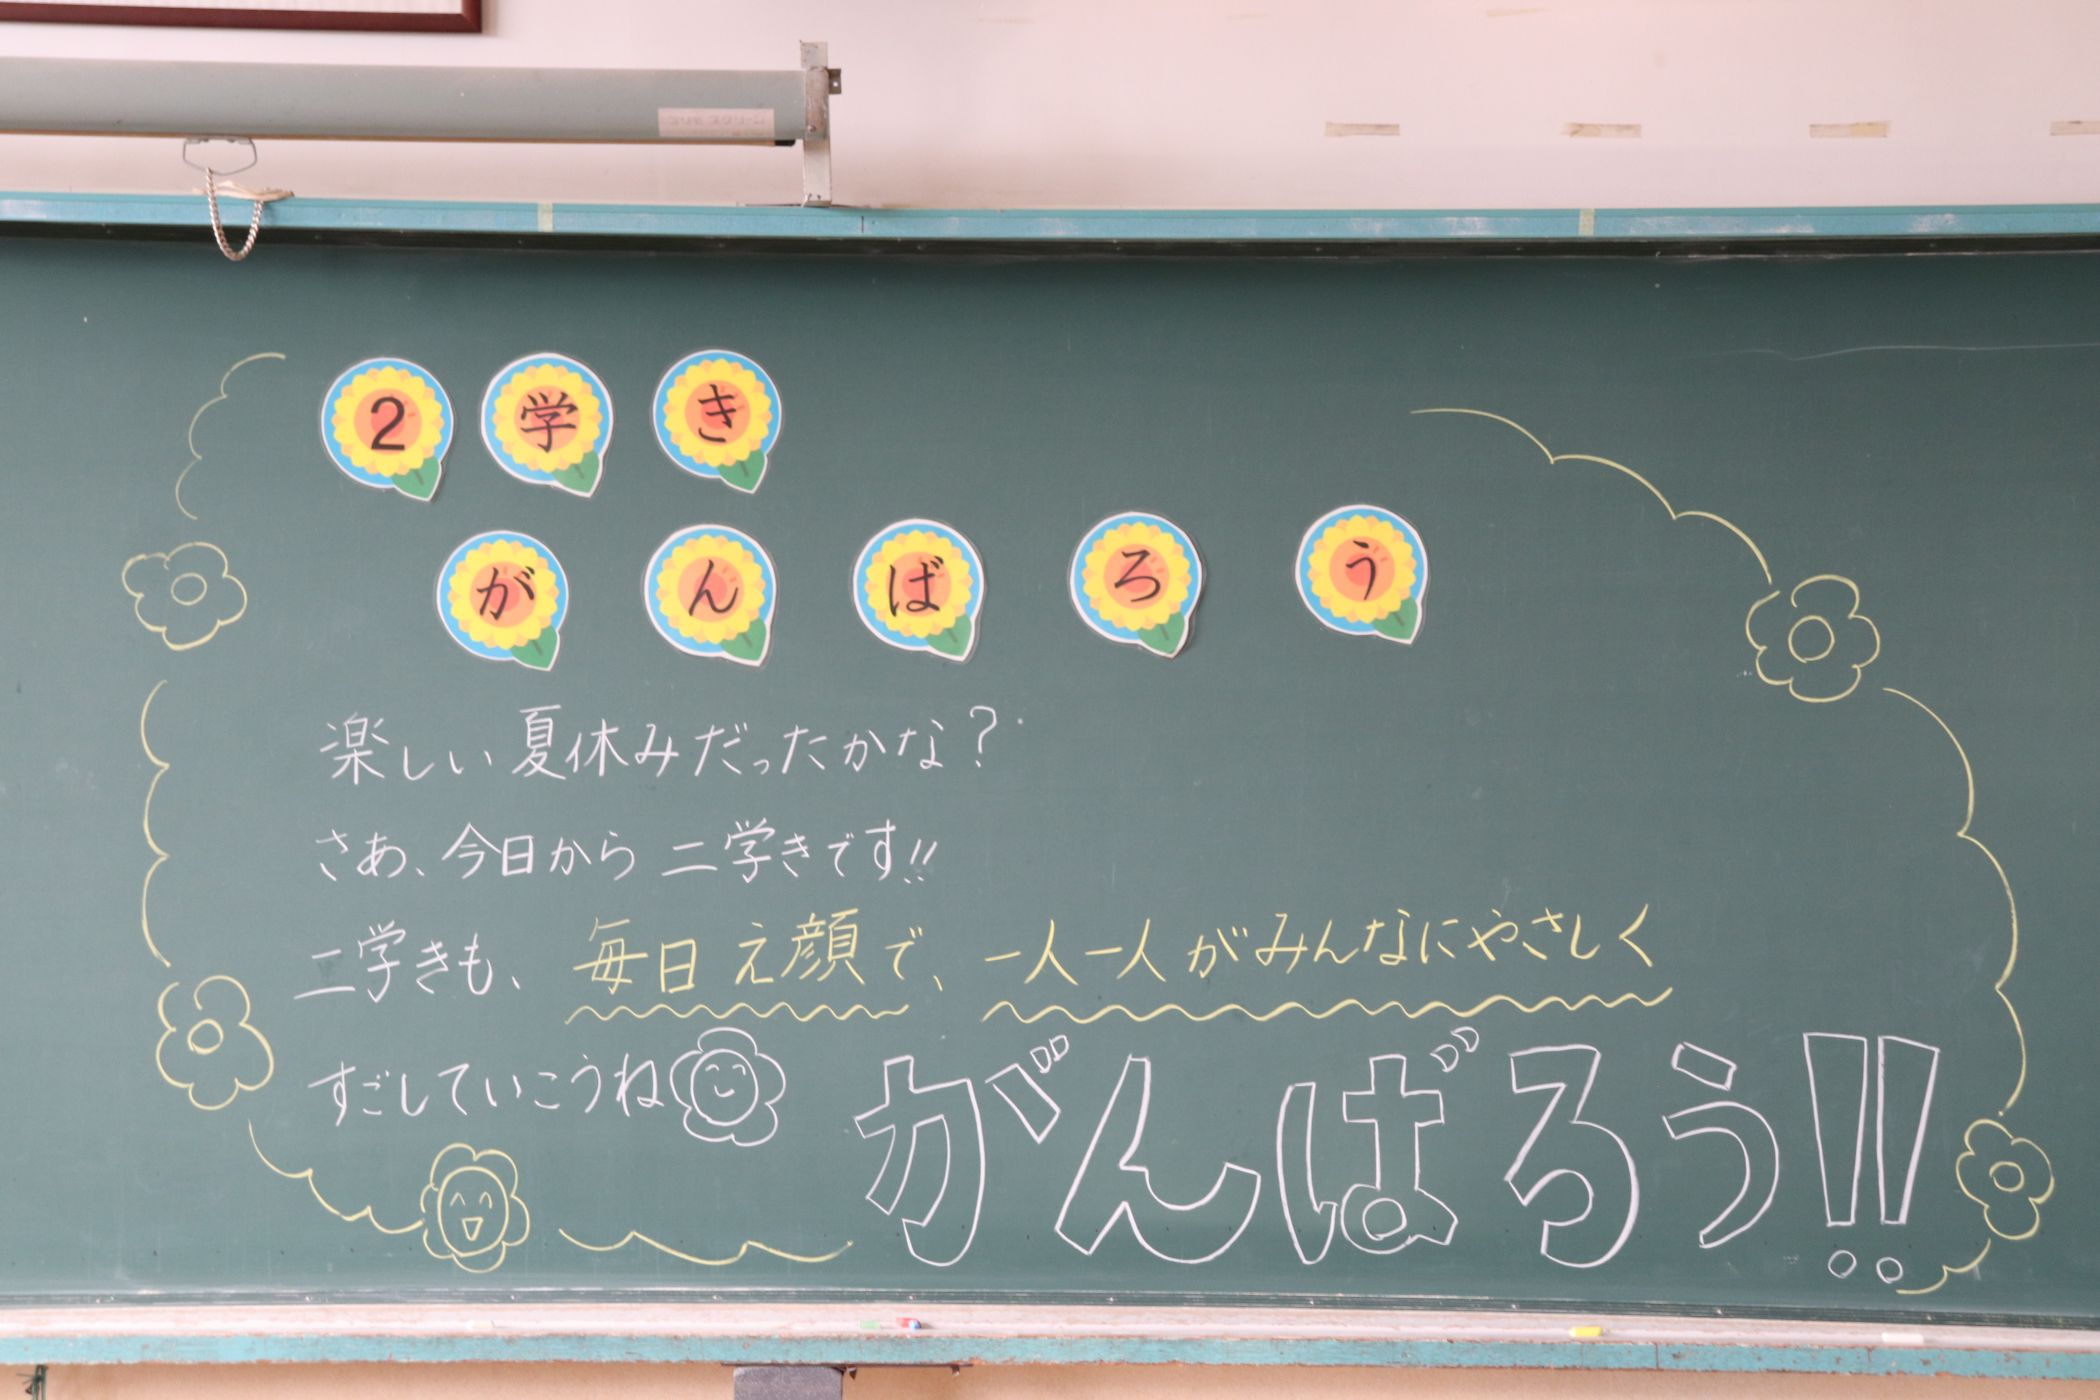 2学き
がんばろう
楽しい夏休みだったかな?
さあ、今日から二学きです!!
二学きも、毎日え顔で、一人一人がみんなにやさしく
すごしていこうね
がんばろう!!